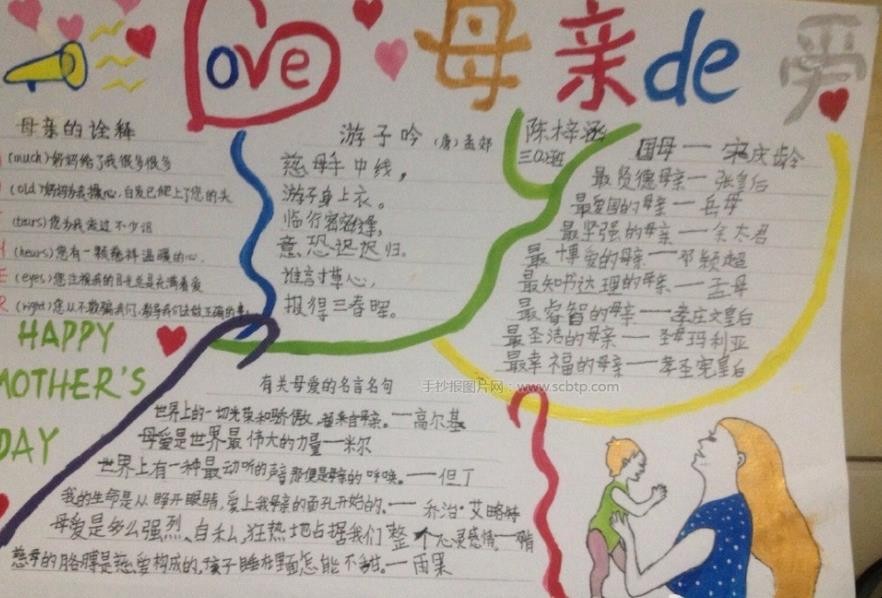 Love 母亲de 爱
母亲的诠释
(much)妈妈给了我很多很多
(old)妈妈为我操心,白发已爬上了您的头
(tears)您为我流过不少泪
(hears)您有一颗慈祥温暖的心.
(eyes)您注视我的目光总是充满着爱
(right)您从不欺骗我们,教导我们去做正确的事.
HAPPY
MOTHER'S
DAY
游子吟 (唐)孟郊
慈母手中线,
游子身上衣。
临行密密缝,
意恐迟迟归。
谁言寸草心,
报得三春晖。
陈梓涵
国母——宋庆龄
最贤德母亲——张皇后
最爱国的母亲——岳母
最坚强的母亲——佘太君
最博爱的母亲——邓颖超
最知书达理的母亲——孟母
最睿智的母亲——孝庄文皇后
最圣洁的母亲——圣母玛利亚
最幸福的母亲——孝圣宪皇后
有关母爱的名言名句
世界上的一切光荣和骄傲,都来自母亲。——高尔基
母爱是世界最伟大的力量—米尔
世界上有一种最动听的声音那便是母亲的呼唤。——但丁
我的生命是从睁开眼睛,爱上我母亲的面孔开始的、——乔治·艾略特
母爱是多么强烈、自私,狂热地占据我们整个心灵感情.
慈母的胳膊是慈爱构成的,孩子睡在里面怎能不甜。—雨果
手抄报图片网:www.scbtp.com